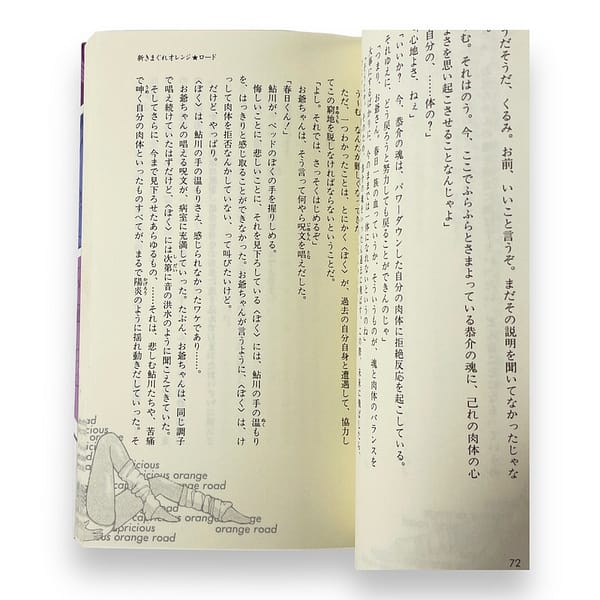 うだそうだ、くるみ。お前、いいこと言うぞ。まだその説明を聞いてなかったじゃな
む。それはのう。今、ここでふらふらとさまよっている恭介の魂に、己れの肉体の心
よさを思い起こさせることなんじゃよ」
自分の、……体の？
心地よさ、ねぇ」
「いいか？　今、恭介の魂は、パワーダウンした自分の肉体に拒絶反応を起こしている。
それゆえに、どう戻ろうと努力しても戻ることができんのじゃ」
「つまり、お爺さん、春日一族の血っていうか、そういうものが、魂と肉体のバランスを
72
新きまぐれオレンジ★ロード
ただ、一つわかったことは、とにかく〈ぼく〉が、過去の自分自身と遭遇して、協力し
てこの窮地を脱しなければならないということだ。
「よし。それでは、さっそくはじめるぞ」
お爺ちゃんは、そう言って何やら呪文を唱えだした。
「春日くん！」
鮎川が、ベッドのぼくの手を握りしめる。
悔しいことに、悲しいことに、それを見下ろしている〈ぼく〉には、鮎川の手の温もり
を、はっきりと感じ取ることができなかった。お爺ちゃんが言うように、〈ぼく〉は、け
っして肉体を拒否なんかしていない、って叫びたいけど。
だけど、やっぱり。
〈ぼく〉は、鮎川の手の温もりさえ、感じられなかったワケであり……。
お爺ちゃんの唱える呪文が、病室に充満していった。たぶん、お爺ちゃんは、同じ調子
で唱え続けていたはずだけど、〈ぼく〉には次第に音の洪水のように聞こえてきていた。
そしてさらに、今まで見下ろせたあらゆるもの、……それは、悲しむ鮎川たちや、苦痛
で呻く自分の肉体といったものすべてが、まるで陽炎のように揺れ動きだしていった。そ
road
capricious
capricious orange
orange road
capricious orange road
capricious orange
orange road